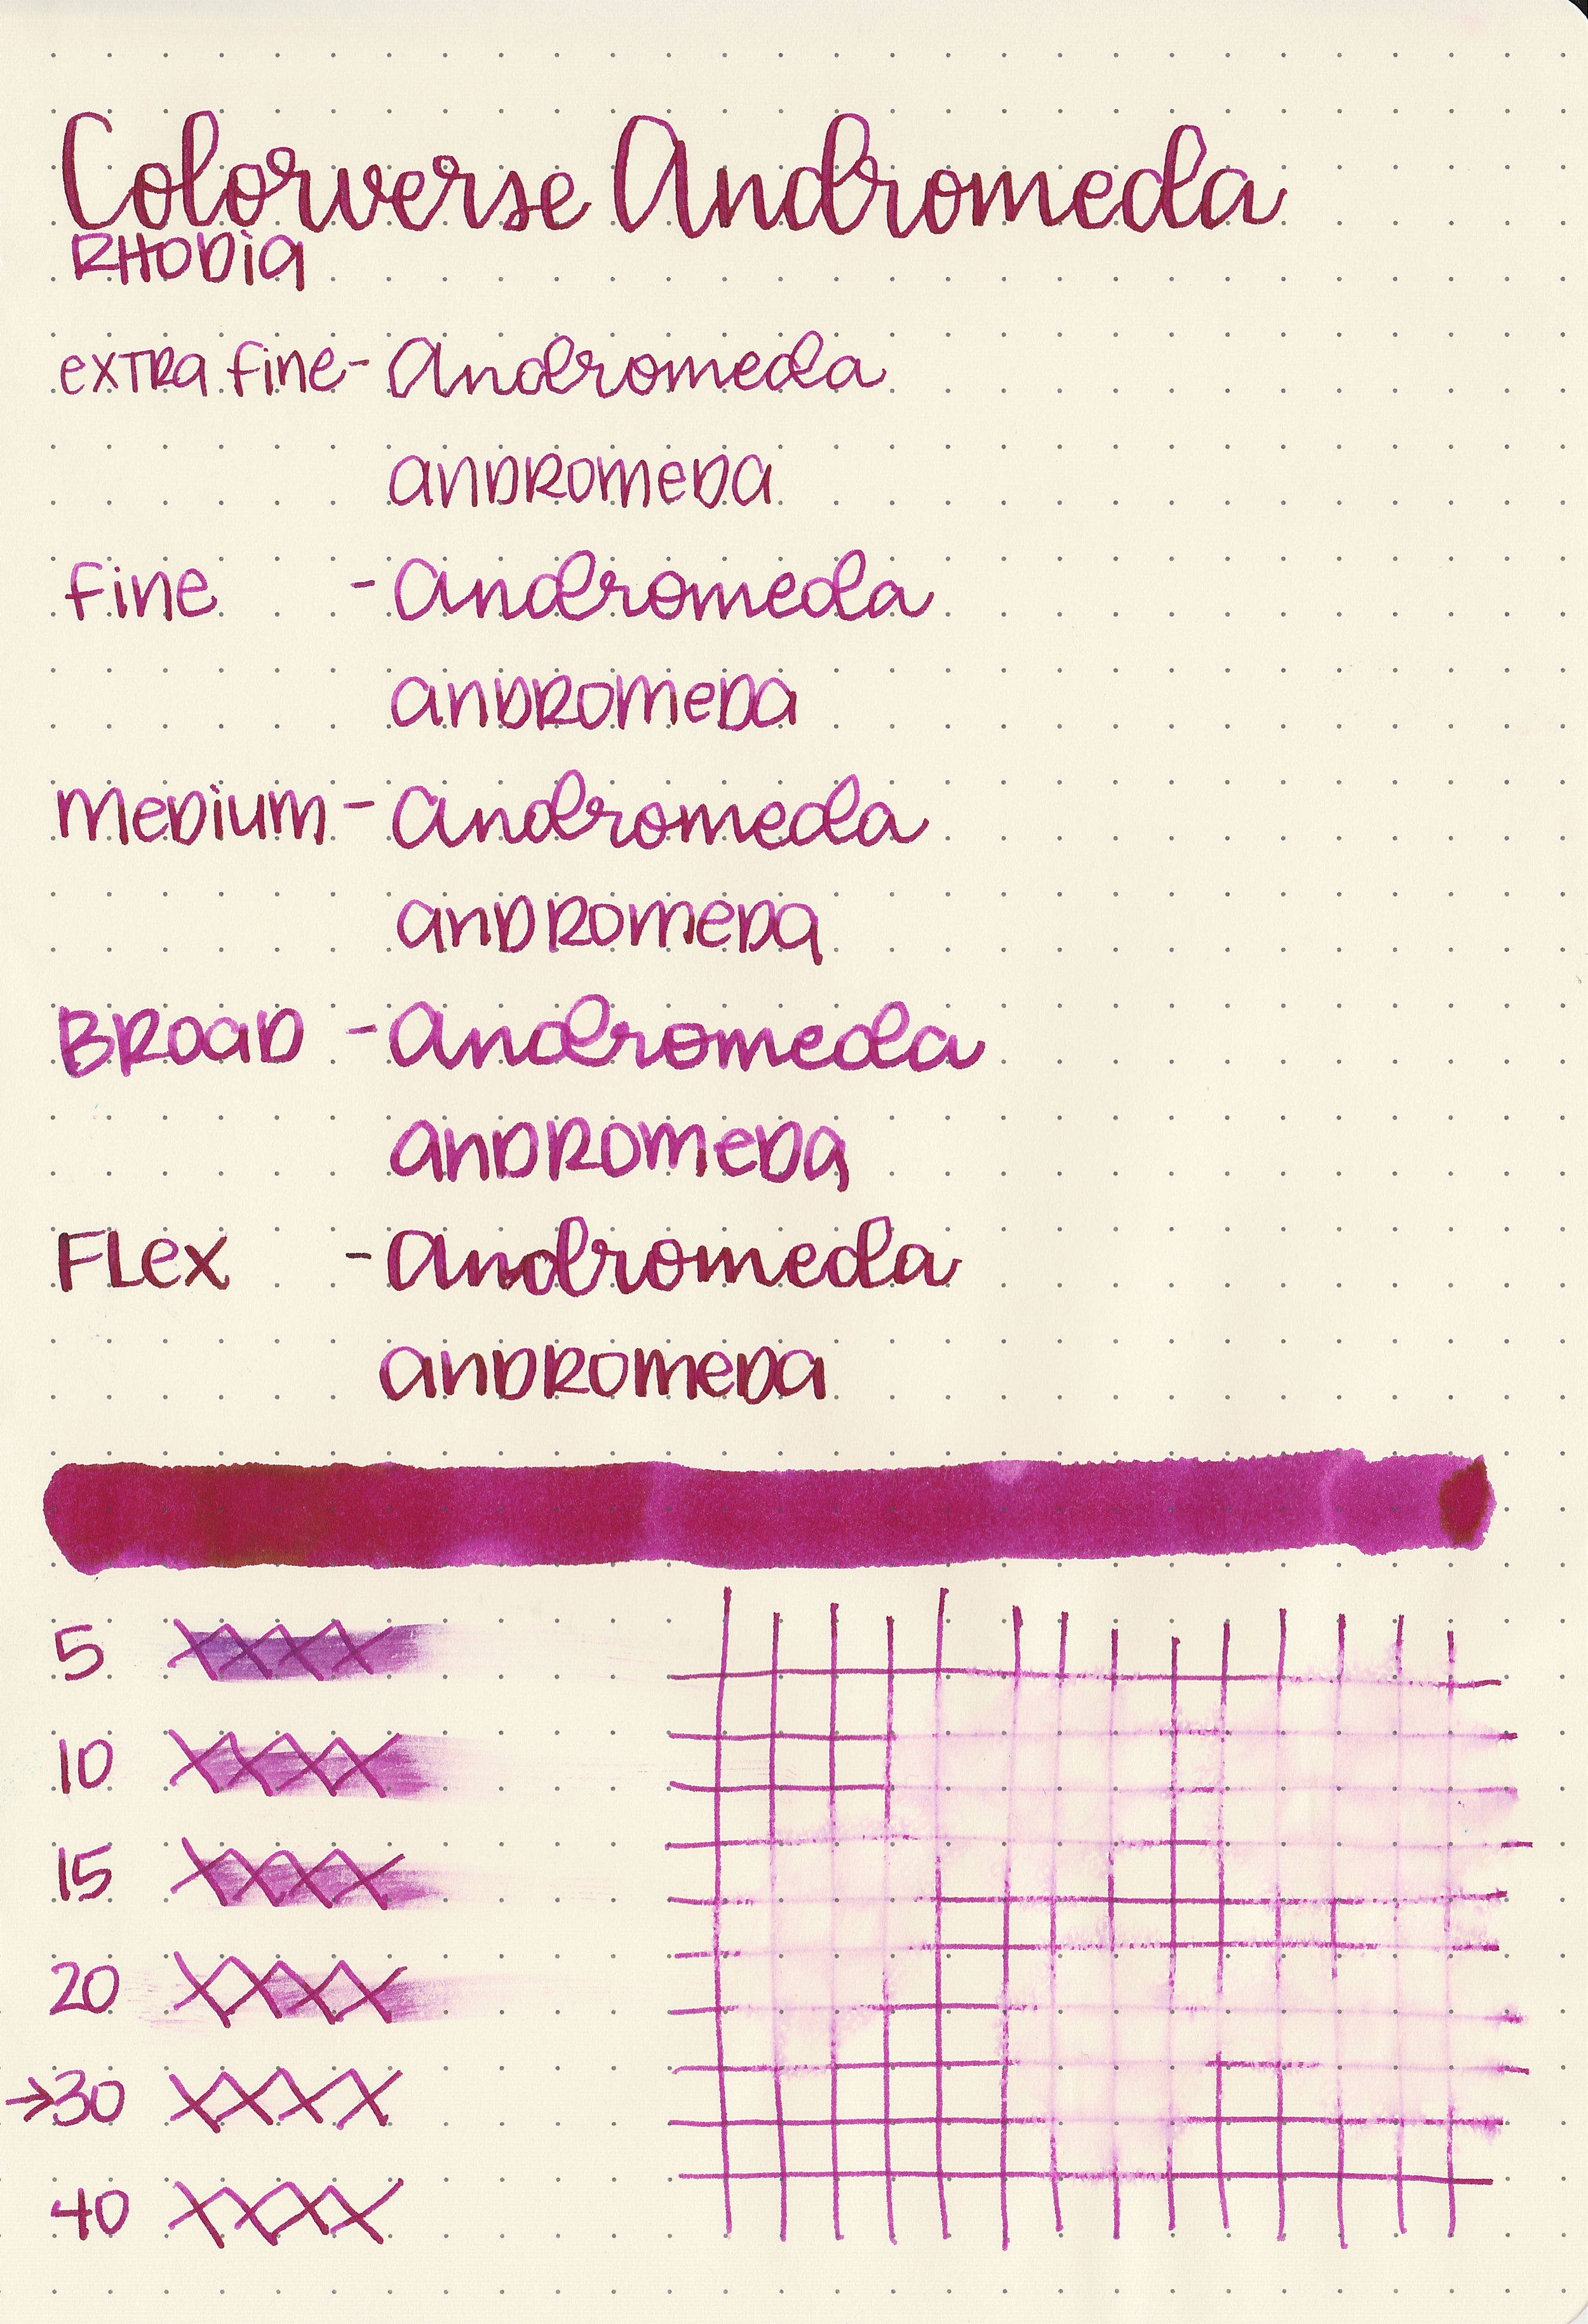 Colorverse Andromeda
RHODia
exTRa fine - Andromeda
anDROmeDa
fine - Andromeda
anDROmeDa
meDium - Andromeda
anDROmeDa
BROaD - Andromeda
anDROmeDa
FLex - Andromeda
anDROmeDa
5 XXXX
10 XXXX
15 XXXX
20 XXXX
→30 XXXX
40 XXXX